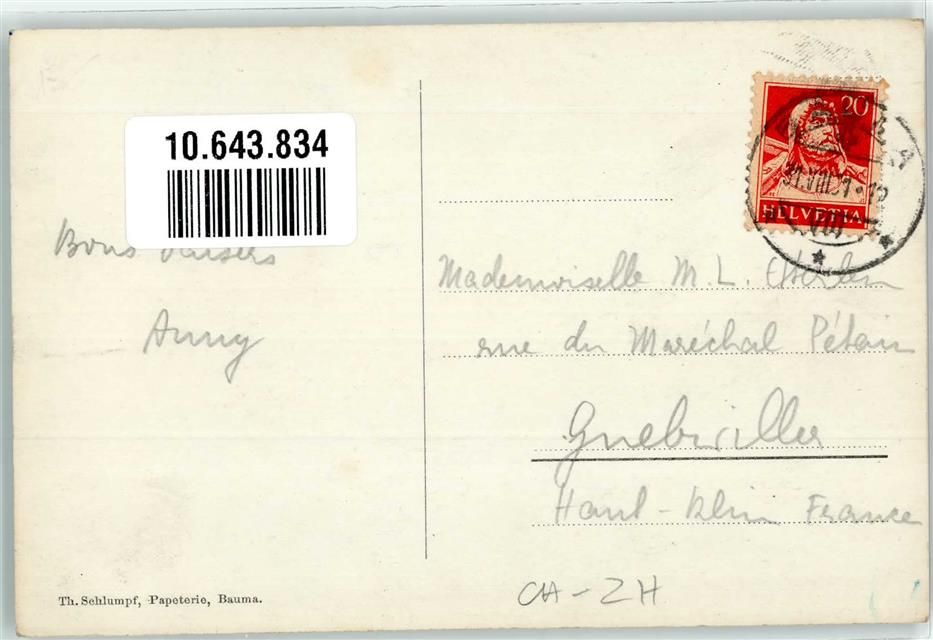 10.643.834
Bons baisers
Anny
20
HELVETIA
31.VIII.21
Mademoiselle M. L.
rue du Maréchal Pétain
Guebwiller
Haut-Rhin France
CH-ZH
Th. Schlumpf, Papeterie, Bauma.